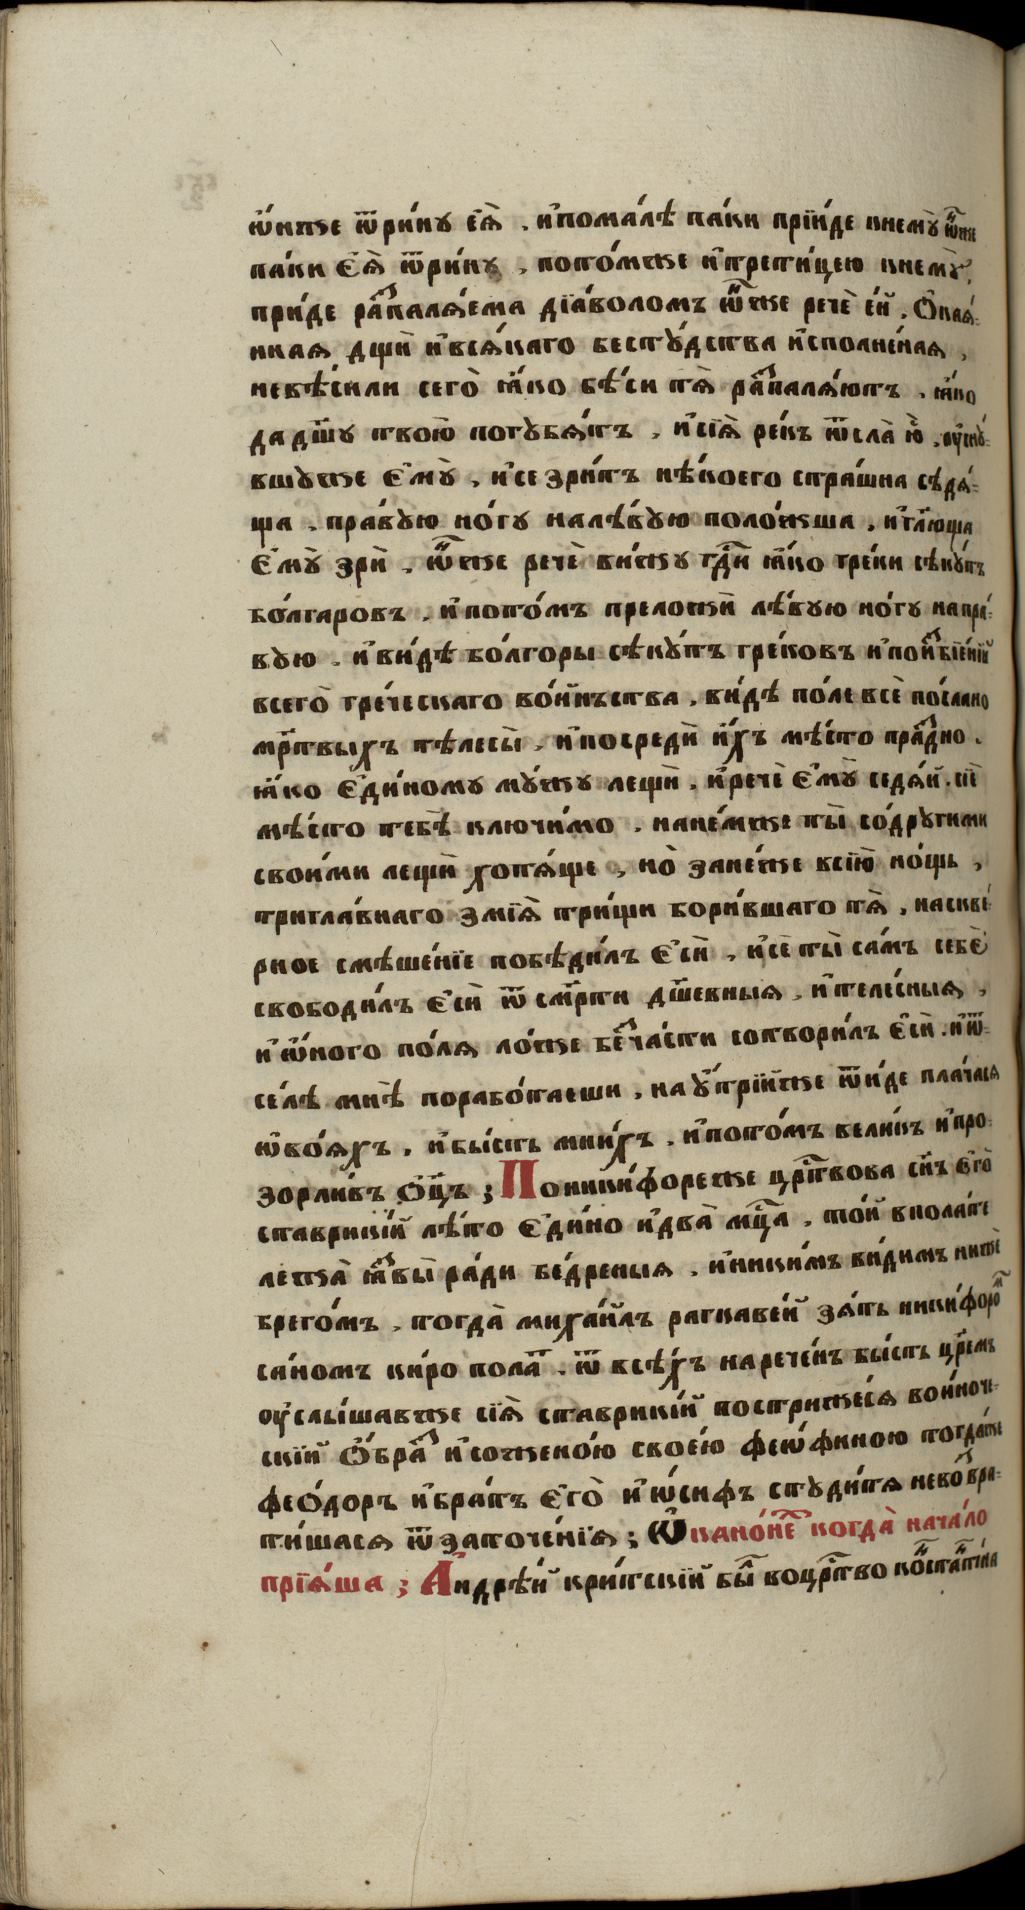 ѡ҆́нже ѿри́ну єѧ̀ . и҆пома́лѣ па́ки прїи́де кнемꙋ̀ ѡ҆́нже
па́ки є҆ѧ̀ ѿри́нꙋ , пото́мже и҆трети́цею кнемꙋ̀ ,
при́де раⷥпалѧ́ема дїа́волом ѡ҆́нже речѐ е́й . Ѻ҆каѧ́-
ннаѧ дщѝ и҆всѧ́каго бестꙋ́дства и҆спо́лненаѧ ,
невѣ́сили сего̀ ꙗ҆́ко бѣ́си тѧ̀ раⷥпалѧ́ютъ . ꙗ҆́ко
да дш҃у твою̀ погꙋбѧ́тъ , и҆сїѧ̀ ре́къ ѿсла̀ ю҆̀ , оу҆снꙋ́-
вшꙋже є҆мꙋ̀ , и҆се зри́тъ нѣ́коего стра́шна сѣдѧ́-
ща . пра́вꙋю но́гу налѣ́вꙋю поло́жша , и҆гл҃юща
є҆мꙋ̀ зрѝ . ѡ҆́нже речѐ ви́жу гдⷭ҇и ꙗ҆́ко гре́ки сѣкꙋ́тъ
бо́лгаровъ . и҆пото́мъ преложѝ лѣ́вꙋю но́гу напра́-
вꙋю . и҆ви́дѣ бо́лгоры сѣкꙋ́тъ гре́ковъ и҆поизⷥбїе́нїи
всего̀ гре́ческаго во́йнъства . ви́дѣ по́ле всѐ по́слано
мр҃твыхъ тѣлесы̀ . и҆посредѝ и҆́хъ мѣ́сто праⷥдно .
ꙗ҆́ко є҆ди́ному мꙋ́жу лещѝ . и҆речѐ є҆мꙋ̀ седѧ́й . сїѐ
мѣ́сто тебѣ̀ ключи́мо . нане́мже ты̀ со́дрꙋгими
свои́ми лещѝ хотѧ́ще , но̀ зане́же всїю̀ но́щь ,
триглавнаго змїѧ̀ три́щи бори́вшаго тѧ̀ , наскве́-
рное смѣше́нїе побѣди́лъ є҆сѝ , и҆сѐ ты̀ са́мъ себѐ
свободи́лъ є҆сѝ ѿ сме́рти дш҃евныѧ , и҆теле́сныѧ ,
и҆ ѡ҆́ного по́лѧ ло́же беⷥча́сти сотвори́лъ є҆сѝ . и҆ѿ-
се́лѣ мнѣ̀ порабо́таеши , на оу҆́трїйже ѿи́де пла́часѧ
ѡ҆во́ѧхъ . и҆бы́сть мни́хъ . и҆пото́мъ вели́къ и҆про-
зорли́въ ѻ҆ц҃ъ ; Поники́форе́же црⷭ҇твова сн҃ъ є҆го̀
ставрикі́й лѣ́то є҆ди́но и҆два̀ мцⷭ҇а . то́й впола́те
лежа̀ ꙗ҆́звы ра́ди бе́дреныѧ . и҆ники́мъ ви́димъ нижѐ
брего́мъ . тогда̀ миха́илъ рагкаве́й зѧ́ть ники́форо
са́номъ ки́ро пола́т . ѿ всѣ́хъ нарече́нъ бы́сть цр҃емъ
оу҆слы́шавже сїѧ̀ ставрикі́й постриже́сѧ во́иноче-
скїй ѻ҆́браⷥ и҆соженою̀ свое́ю феѡ҆фи́ною тогда́же
феѻ́доръ и҆бра́тъ є҆го̀ и҆ ѡ҆́сифъ стꙋди́тѧ невоⷥвра-
ти́шасѧ ѿ заточе́нїѧ ; Ѡ҆кано́нѣ когда̀ нача́ло
прїѧ́ша ; А҆ндре́й кри́тскїй бы́ воцрⷭ҇тво коⷩстаⷩти́на